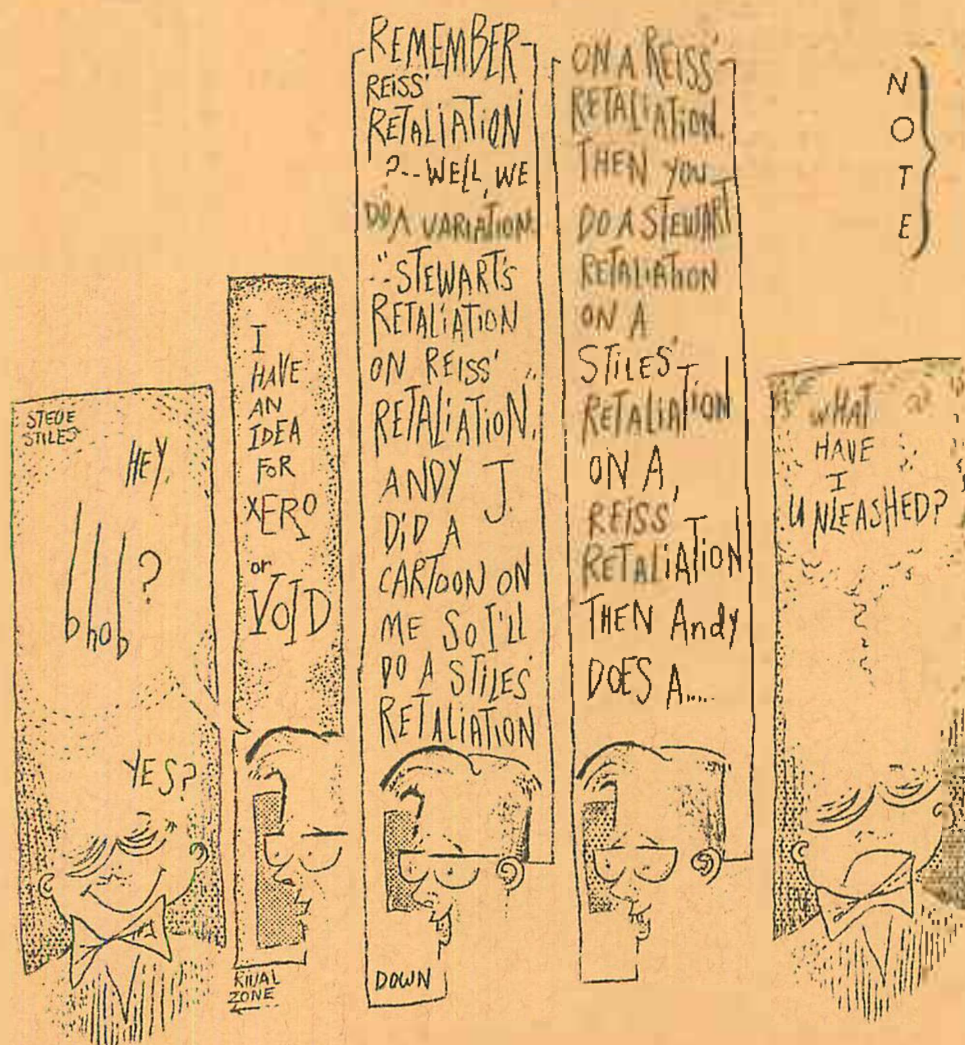 STEVE
STILES
HEY,
bhob?
YES?
I
HAVE
AN
IDEA
FOR
XERO
or
VOID
RIVAL
ZONE
REMEMBER
REISS'
RETALIATION
?--WELL, WE
DO A VARIATION.
"STEWART'S
RETALIATION
ON REISS'
RETALIATION."
ANDY J.
DID A
CARTOON ON
ME SO I'LL
DO A STILES'
RETALIATION
DOWN
ON A REISS'
RETALIATION.
THEN YOU
DO A STEWART
RETALIATION
ON A
STILES'
RETALIATION
ON A
REISS'
RETALIATION
THEN Andy
DOES A.....
WHAT
HAVE
I
UNLEASHED?
N
O
T
E